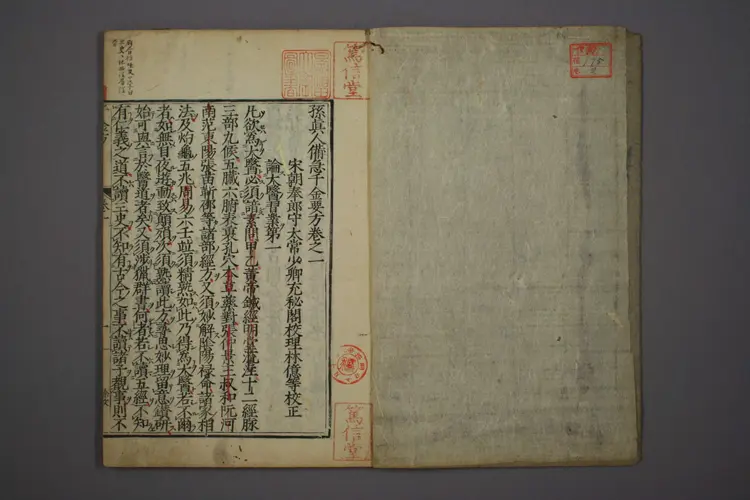 孫真人備急千金要方卷之一
宋朝奉郎守太常少卿充秘閣校理林億等校正
論大醫習業第一
凡欲為大醫必須諳素問甲乙黃帝鍼經明堂流注十二經脉
三部九候五臟六腑表裏孔穴本草藥對張仲景王叔和阮河
南范東陽張苗靳卲等諸部經方又須妙解陰陽祿命諸家相
法及灼龜五兆周易六壬並須精熟如此乃得為大醫若不爾
者如無目夜遊動致顛殞次須熟讀此方尋思妙理留意鑽研
始可與言於醫道者矣又須涉獵群書何者若不讀五經不知
有仁義之道不讀三史不知有古今之事不讀諸子覩事則不
篤信堂
篤信堂